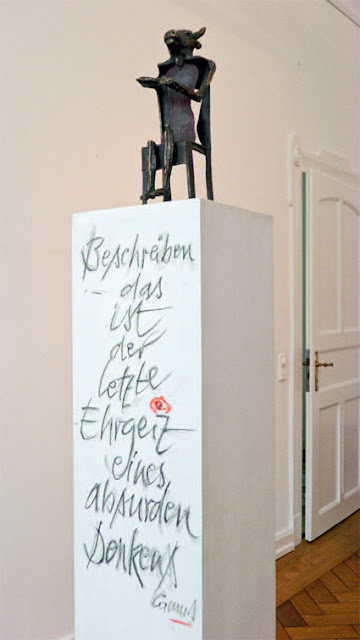 Beschreiben
– das
ist
der
letzte
Ehrgeiz
eines
absurden
Denkens
Camus